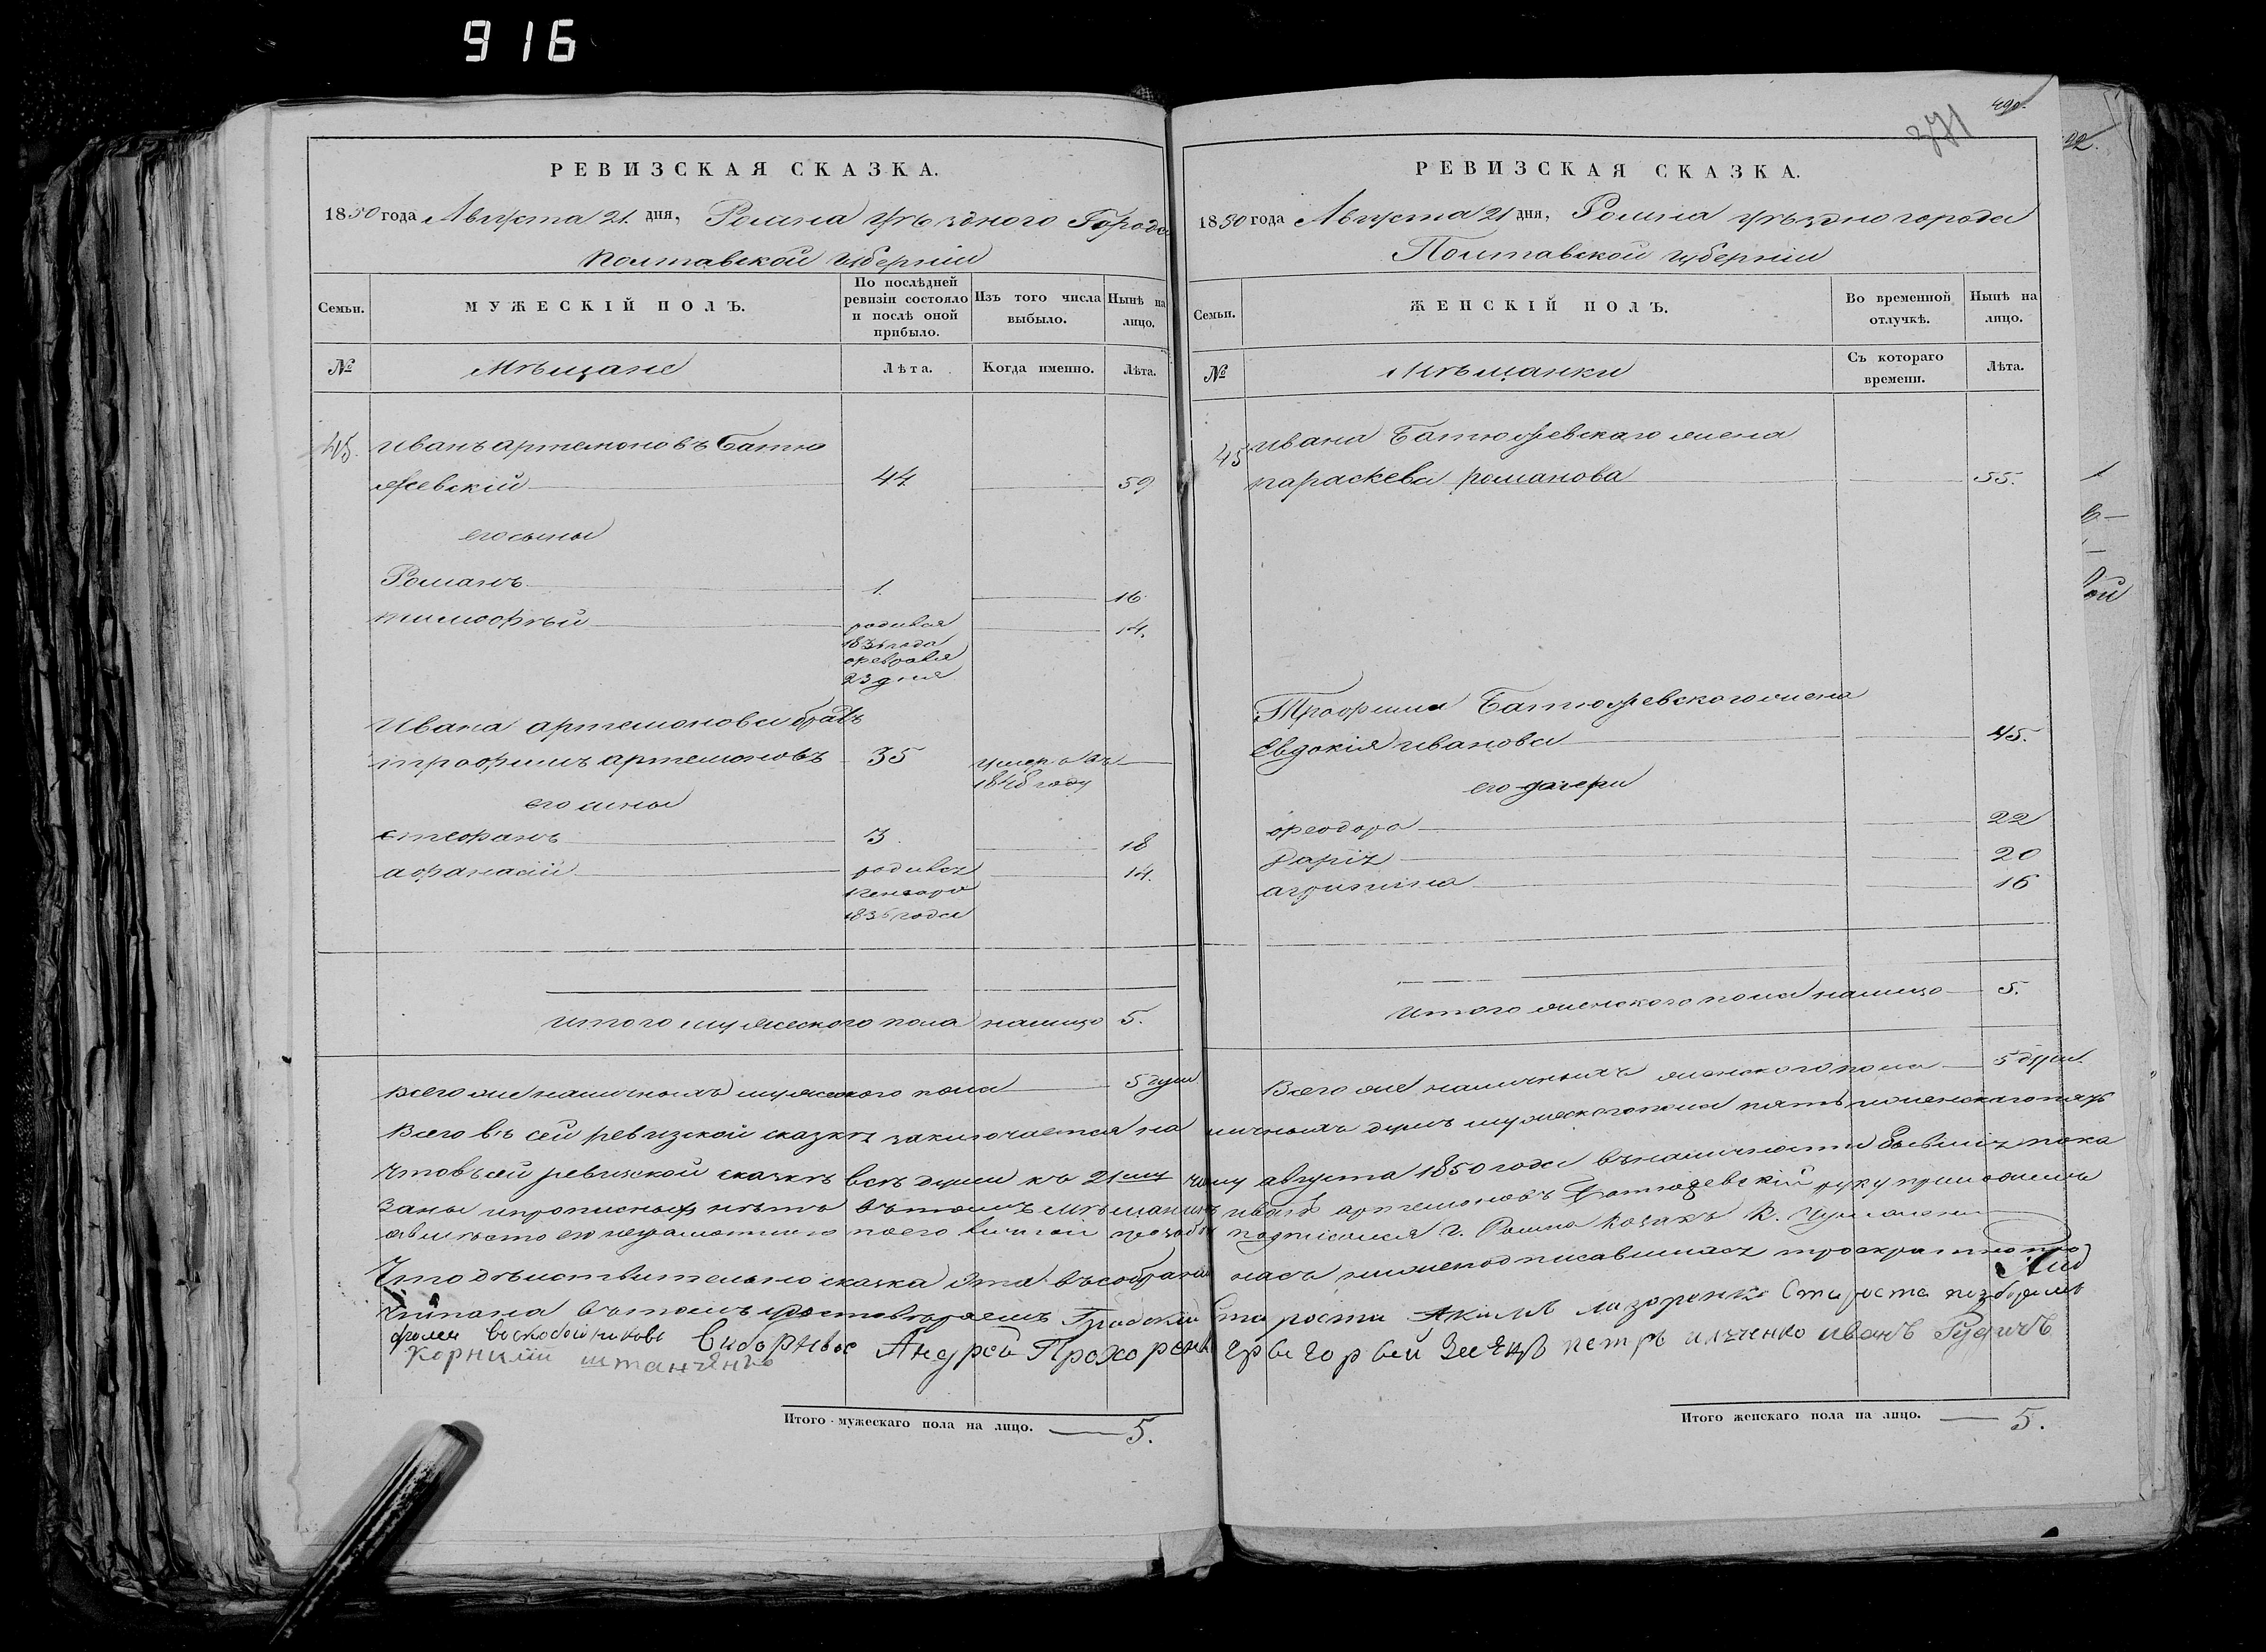 916
РЕВИЗСКАЯ СКАЗКА.
1850 года Августа 21. дня, Ромна уѣзднаго Города
Полтавской Губерніи
Семьи.
МУЖЕСКІЙ ПОЛЪ.
По послѣдней ревизіи состояло и послѣ оной прибыло.
Изъ того числа выбыло.
Нынѣ на лицо.
№
Мѣщане
Лѣта.
Когда именно.
Лѣта.
45. Иванъ артемоновъ Батю
жевскій 44 59
его сыны
Романъ 1. 16
тимофѣй родился 14.
1836 года
февраля
23 дня
Ивана артемонова братъ
трофимъ артемоновъ 35 умеръ въ
1848 году
его сыны
стефанъ 3. 18
афанасій родился 14.
генваря
1836 года
итого мужеского пола налицо 5.
Всего же наличныхъ мужеского пола 5 душ
РЕВИЗСКАЯ СКАЗКА.
371
490.
22.
1850 года Августа 21 дня, Ромна уѣздно города
Полтавской губерніи
Семьи.
ЖЕНСКІЙ ПОЛЪ.
Во временной отлучкѣ.
Нынѣ на лицо.
№
Мѣщанки
Съ котораго времени.
Лѣта.
45 Ивана Батюжевскаго жена
параскева романова 55.
Трофима Батюжевского жена
Евдокія иванова 45.
его дочери
феодора 22
Дарія 20
агрипина 16
Итого женского пола налицо 5.
Всего же наличныхъ женского пола 5 душ.
Всего въ сей ревизской сказкѣ заключается наличныхъ душъ мужеского пола пять женскаго пять
Что въ сей ревизской сказкѣ всѣ души къ 21му числу августа 1850 года въ наличности бывшія пока
заны и прописныхъ нѣтъ въ томъ мѣщанинъ иванъ артемоновъ Батюжевскій руку приложилъ
а вмѣсто его неграмотного по его личной прозбѣ подписался г. Ромна Козакъ К.
Что дѣйствительно сказка эта въ собраніи насъ нижеподписавшихся троекратно про
читана въ томъ удостовѣряемъ Градскій Староста Акимъ Лазоренко Староста
Выборные Андрей Прохоренко Петръ иванъ Рудичъ
Корнилій штанченко
Итого мужескаго пола на лицо. 5.
Итого женскаго пола на лицо. 5.